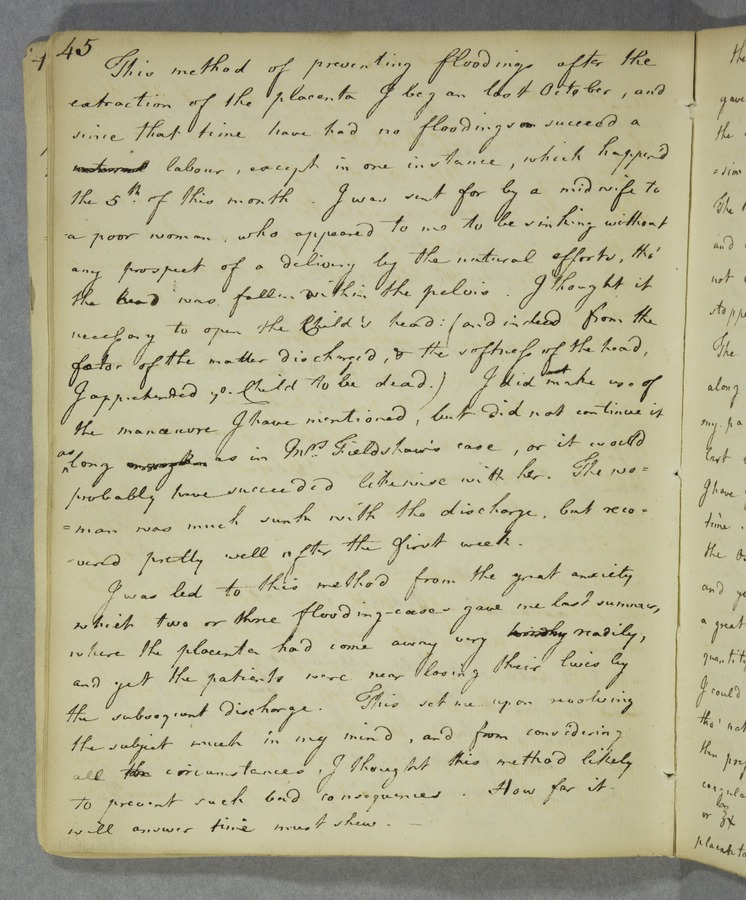 45
This method of preventing floodings after the
extraction of the placenta I began last October, and
since that time have had no floodings succeed a
labour, except in one instance, which happen'd
the 5th. of this month. I was sent for by a midwife to
a poor woman, who appeared to me to be sinking without
any prospect of a delivery by the natural efforts, tho'
the head was fallen within the pelvis. I thought it
necessary to open the Child's head: (and indeed from the
fœtor of the matter discharged, & the softness of the head,
I apprehended ye. Child to be dead.) I did not make use of
the manœuvre I have mentioned, but did not continue it
as long as in Mrs. Fieldshaw's case, or it would
probably have succeeded likewise with her. The wo=
=man was much sunk with the discharge, but reco=
=vered pretty well after the first week.
I was led to this method from the great anxiety
which two or three flooding-cases gave me last summer,
where the placenta had come away very readily,
and yet the patients were near losing their lives by
the subsequent discharge. This set me upon revolving
the subject much in my mind, and from considering
all the circumstances, I thought this method likely
to prevent such bad consequences. How far it
will answer time must shew. —